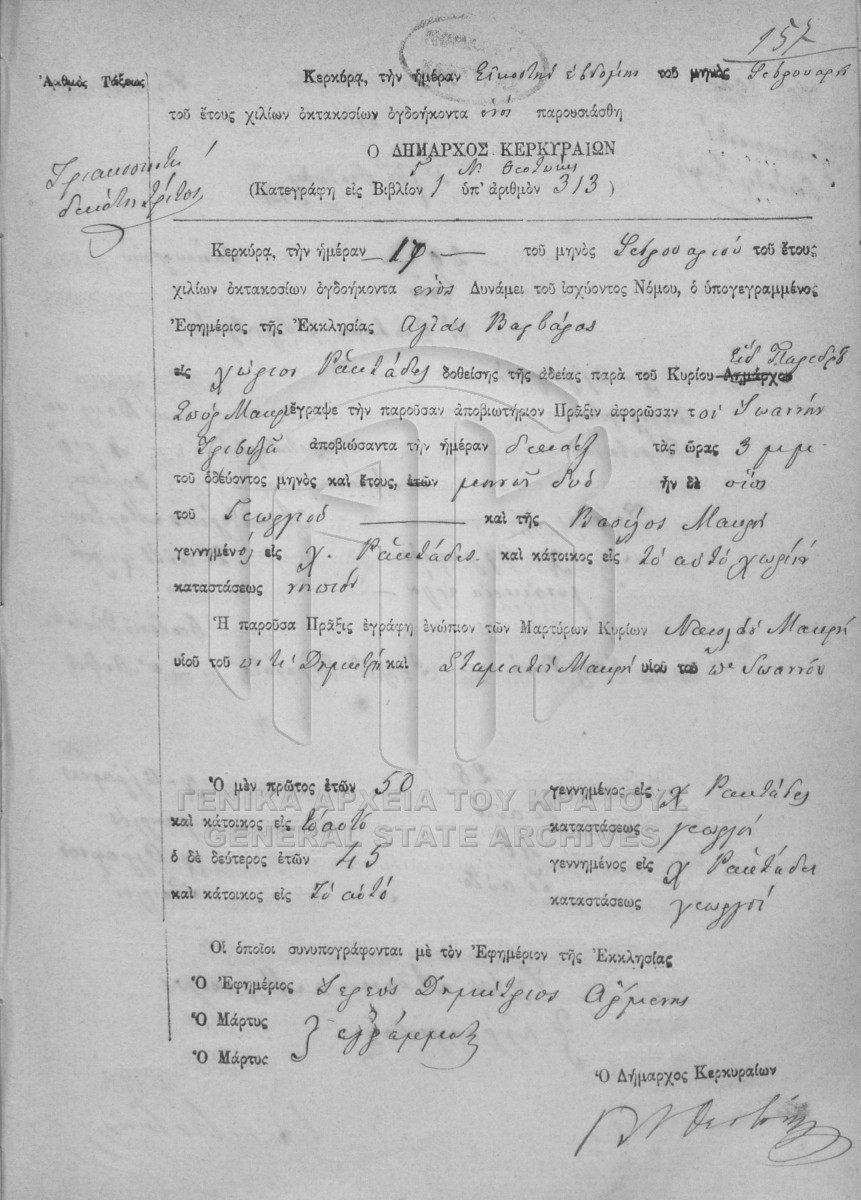 157
Ἀριθμὸς Τάξεως
Κερκύρᾳ, τὴν ἡμέραν Εἰκοστὴν ἑβδόμην τοῦ μηνὸς Φεβρουαρίου
τοῦ ἔτους χιλίων ὀκτακοσίων ὀγδοήκοντα ἑνὸς παρουσιάσθη
Ο ΔΗΜΑΡΧΟΣ ΚΕΡΚΥΡΑΙΩΝ
Γ. Ν. Θεοτόκης
Τριακοσιοστὴ
δεκάτη τρίτος
(Κατεγράφη εἰς Βιβλίον 1 ὑπ' ἀριθμὸν 313)
Κερκύρᾳ, τὴν ἡμέραν τοῦ μηνὸς Φεβρουαρίου τοῦ ἔτους
χιλίων ὀκτακοσίων ὀγδοήκοντα ἑνὸς Δυνάμει τοῦ ἰσχύοντος Νόμου, ὁ ὑπογεγραμμένος
Ἐφημέριος τῆς Ἐκκλησίας Αγίας Βαρβάρας
εἰς χωρίον Ρακτάδες δοθείσης τῆς ἀδείας παρὰ τοῦ Κυρίου Δημάρχου Εἰδ Παρέδρου
Σπύρ Μακρῆ ἔγραψε τὴν παροῦσαν ἀποβιωτήριον Πρᾶξιν ἀφορῶσαν τὸν Ἰωάννην
Τριβυζᾶ ἀποβιώσαντα τὴν ἡμέραν δεκάτην τὰς ὥρας 3 μ.μ.
τοῦ ὁδεύοντος μηνὸς καὶ ἔτους, ἐτῶν μηνῶν δύο ἦν δὲ υἱὸς
τοῦ Γεωργίου καὶ τῆς Βασίλως Μακρῆ
γεννημένος εἰς χ. Ρακτάδες καὶ κάτοικος εἰς τὸ αὐτὸ χωρίον
καταστάσεως νηπίου
Ἡ παροῦσα Πρᾶξις ἐγράφη ἐνώπιον τῶν Μαρτύρων Κυρίων Νικολάου Μακρῆ
υἱοῦ τοῦ ποτὲ Δημήτρη καὶ Σταματίου Μακρῆ υἱοῦ τοῦ πε Ἰωάννου
Ὁ μὲν πρῶτος ἐτῶν 50 γεννημένος εἰς χ Ρακτάδες
καὶ κάτοικος εἰς τὸ αὐτὸ καταστάσεως γεωργοῦ
ὁ δὲ δεύτερος ἐτῶν 45 γεννημένος εἰς χ Ρακτάδες
καὶ κάτοικος εἰς τὸ αὐτὸ καταστάσεως γεωργοῦ
ΓΕΝΙΚΑ ΑΡΧΕΙΑ ΤΟΥ ΚΡΑΤΟΥΣ
GENERAL STATE ARCHIVES
Οἱ ὁποῖοι συνυπογράφονται μὲ τὸν Ἐφημέριον τῆς Ἐκκλησίας
Ὁ Ἐφημέριος Ἱερεὺς Δημήτριος Αρμένης
Ὁ Μάρτυς
Ὁ Μάρτυς } αγράμματοι
Ὁ Δήμαρχος Κερκυραίων
Γ Ν Θεοτόκης